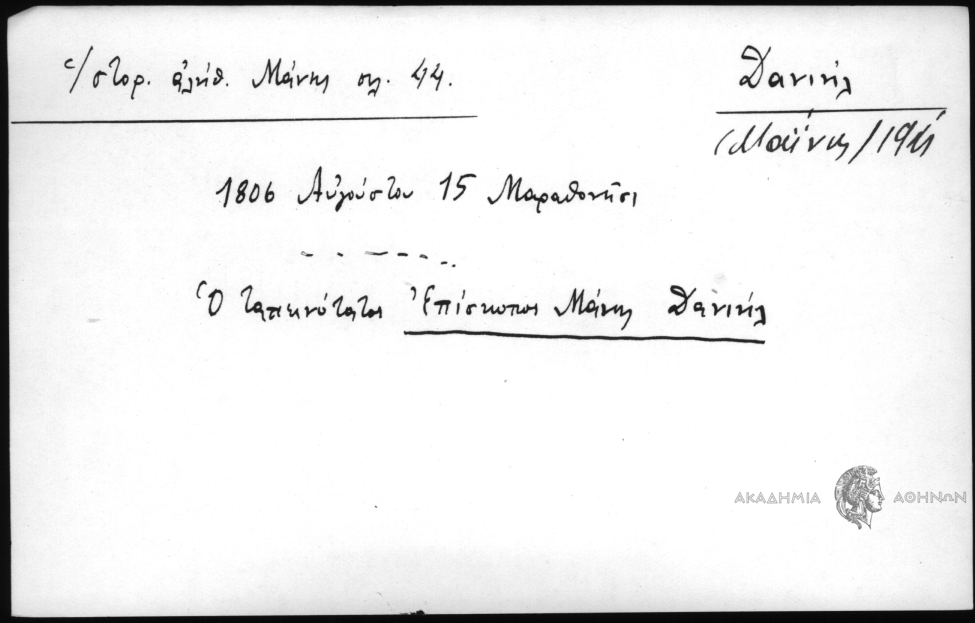 Ἱστορ. ἀλήθ. Μάνης σελ. 44.
Δανιήλ
Μαΐνης
1806 Αὐγούστου 15 Μαραθονῆσι
Ὁ ταπεινότατος Ἐπίσκοπος Μάνης Δανιήλ
ΑΚΑΔΗΜΙΑ ΑΘΗΝΩΝ